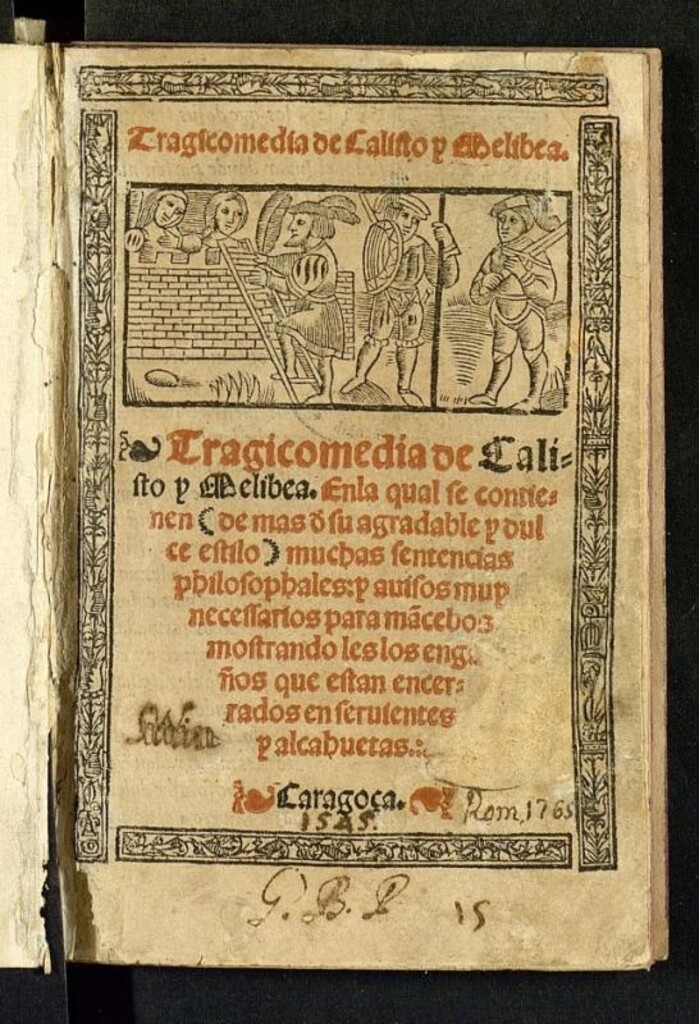 Tragicomedia de Calisto y Melibea.
Tragicomedia de Cali=
sto y Melibea. Enla qual se contie=
nen (de mas đ su agradable y dul
ce estilo) muchas sentencias
philosophales: y auisos muy
necessarios para mãcebos:
mostrando les los eng
ños que estan encer=
rados en seruientes
y alcahuetas.:.
Caragoça.
1545.
Rom, 1765
G. B. P
15